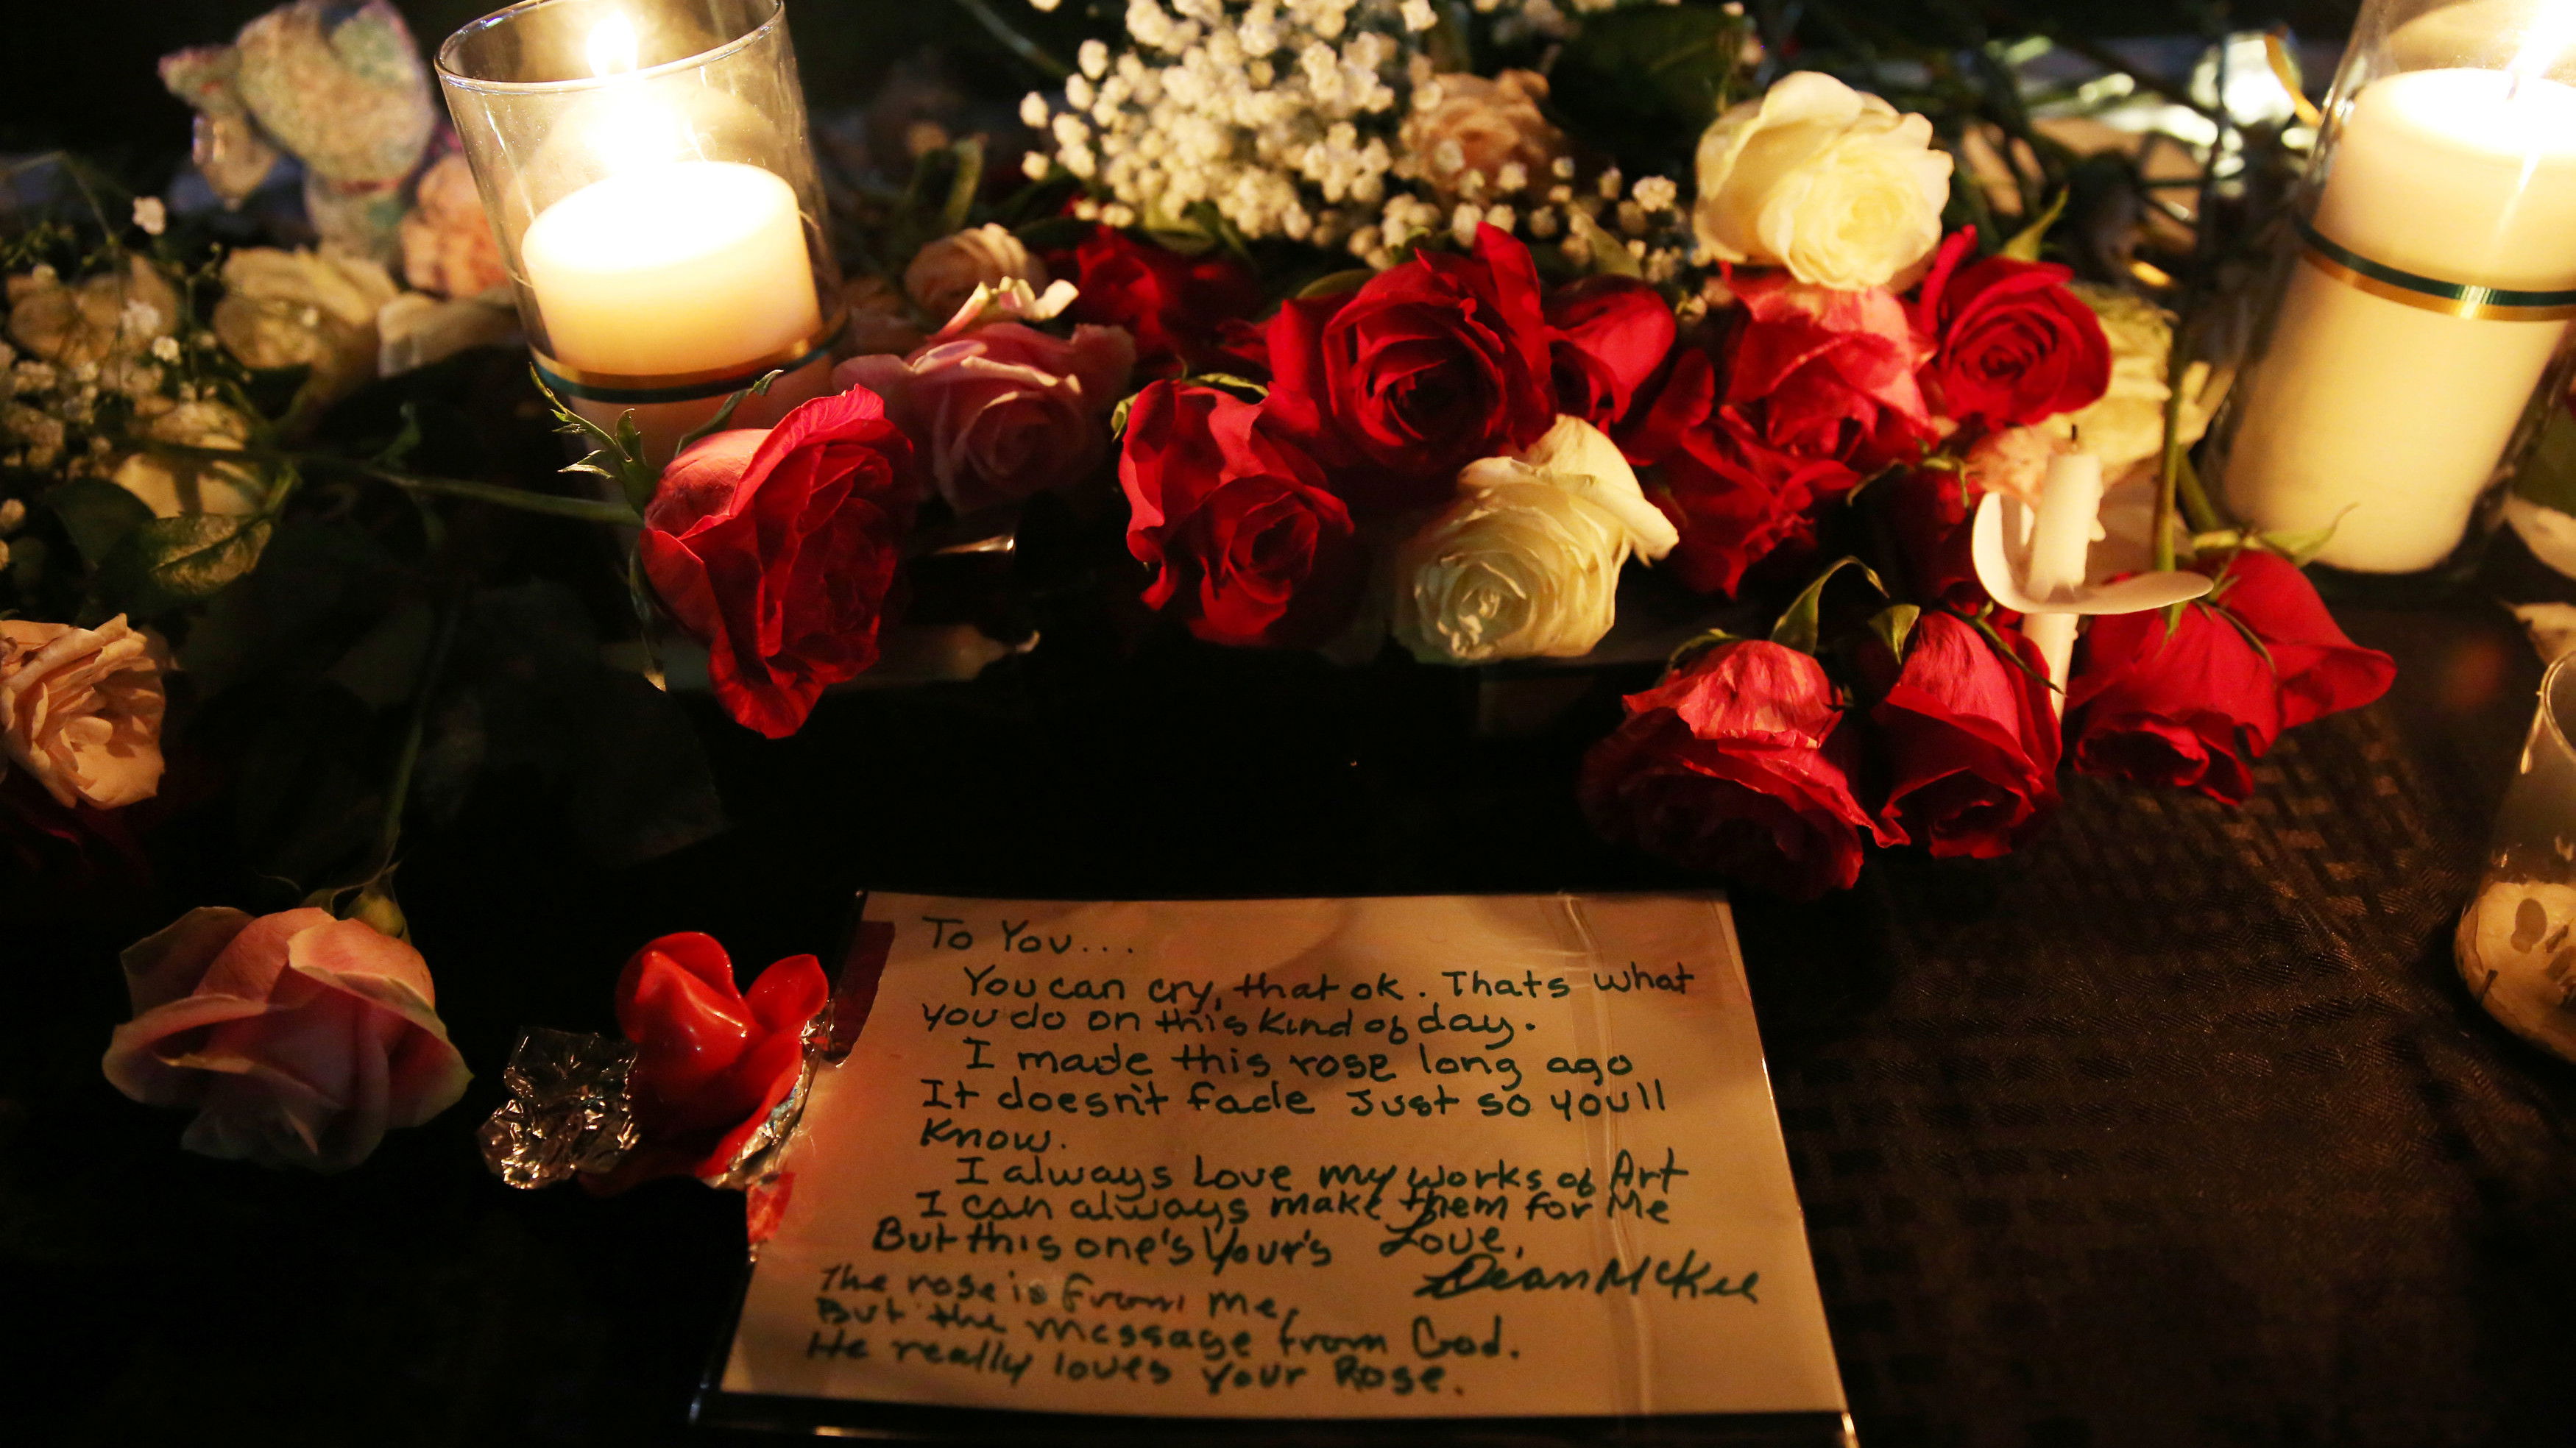 To You...
You can cry, that ok. Thats what
you do on this kind of day.
I made this rose long ago
It doesn't fade Just so you'll
know.
I always Love my works of Art
I can always make them for Me
But this one's Your's Love,
Dean McKee
The rose is from me,
But the message from God.
He really loves your Rose.